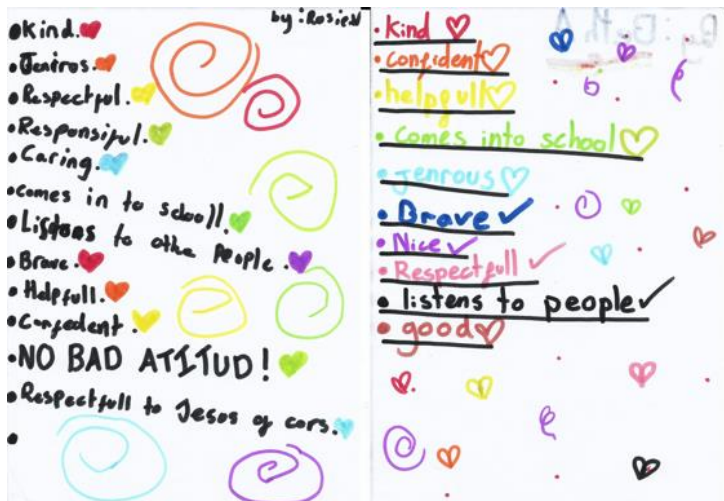 by: Rosie W
• Kind.
• Jeniros.
• Respectful.
• Responsiful.
• Caring.
• comes in to schooll.
• Listens to othe People.
• Brave.
• Helpfull.
• Confedent.
• NO BAD ATITUD!
• Respectfull to Jesos of cors.
•
By: Beth A
• kind
• confident
• helpfull
• comes into school
• jenrous
• Brave ✓
• Nice ✓
• Respectfull ✓
• listens to people ✓
• good